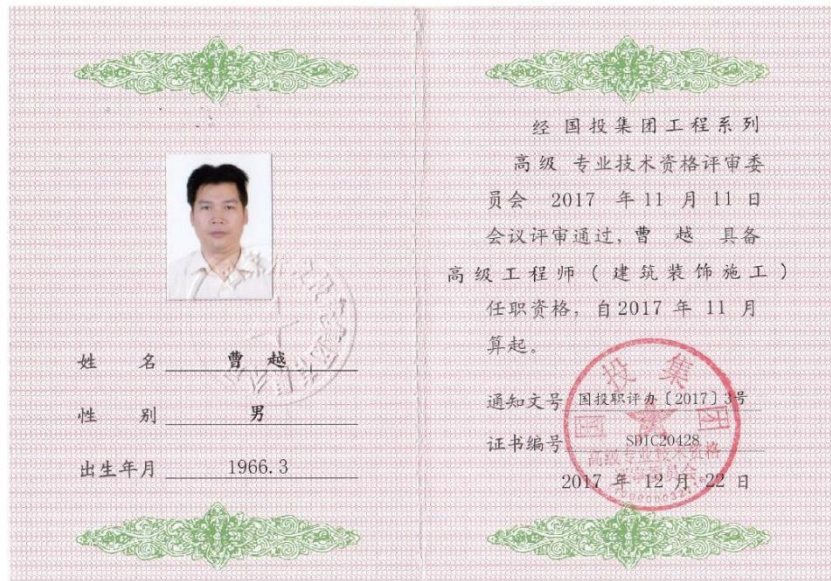 姓 名 曹 越
性 别 男
出生年月 1966.3
经 国投集团工程系列
高级 专业技术资格评审委
员会 2017 年 11 月 11 日
会议评审通过, 曹 越 具备
高级工程师(建筑装饰施工)
任职资格, 自2017 年 11 月
算起。
通知文号 国投职评办〔2017〕3号
证书编号 SDIC20428
2017 年 12 月 22 日
国投集团
高级专业技术资格
评审委员会